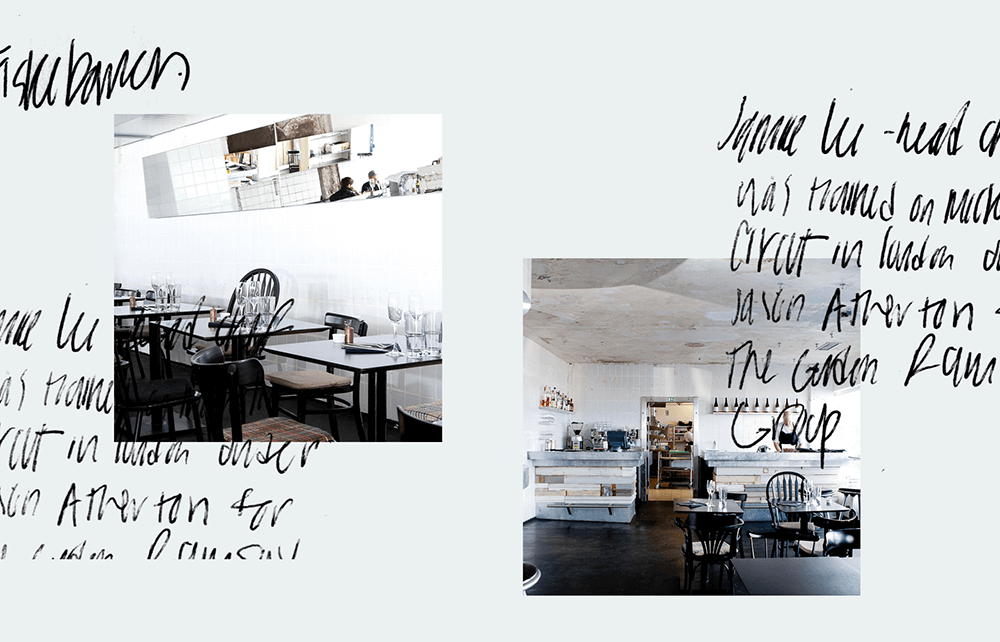 Fiskebaren
Lee head chef
was traine
rcut in london under
son Atherton for
Gordon Ramsay
Jamie Lee - head ch
was trained on mich
Circut in london
Jason Atherton
The Gordon Ram
Group